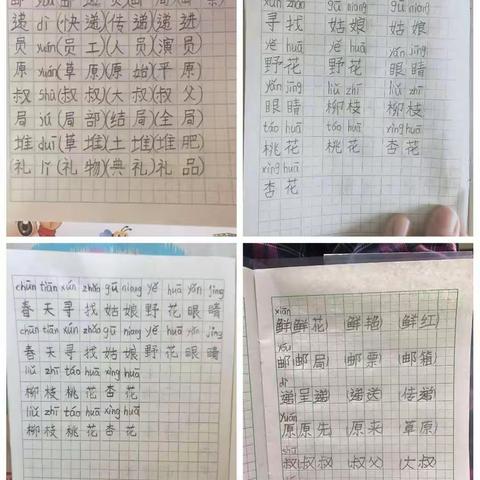 递 dì (快递)(传递)(递进)
员 yuán (员工)(人员)(演员)
原 yuán (草原)(原始)(平原)
叔 shū (叔叔)(大叔)(叔父)
局 jú (局部)(结局)(全局)
堆 duī (草堆)(土堆)(堆肥)
礼 lǐ (礼物)(典礼)(礼品)
寻找 姑娘 姑娘
yě huā yě huā yǎn jīng
野花 野花 眼睛
yǎn jīng liǔ zhī liǔ zhī
眼睛 柳枝 柳枝
táo huā táo huā xìng huā
桃花 桃花 杏花
xìng huā
杏花
chūn tiān xún zhǎo gū niang yě huā yǎn jīng
春天寻找姑娘野花眼睛
chūn tiān xún zhǎo gū niang yě huā yǎn jīng
春天寻找姑娘野花眼睛
liǔ zhī táo huā xìng huā
柳枝桃花杏花
liǔ zhī táo huā xìng huā
柳枝桃花杏花
xiān
鲜(鲜花)(鲜艳)(鲜红)
yóu
邮(邮局)(邮票)(邮箱)
dì
递(呈递)(递送)(传递)
yuán
原(原先)(原来)(草原)
shū
叔(叔叔)(叔父)(大叔)